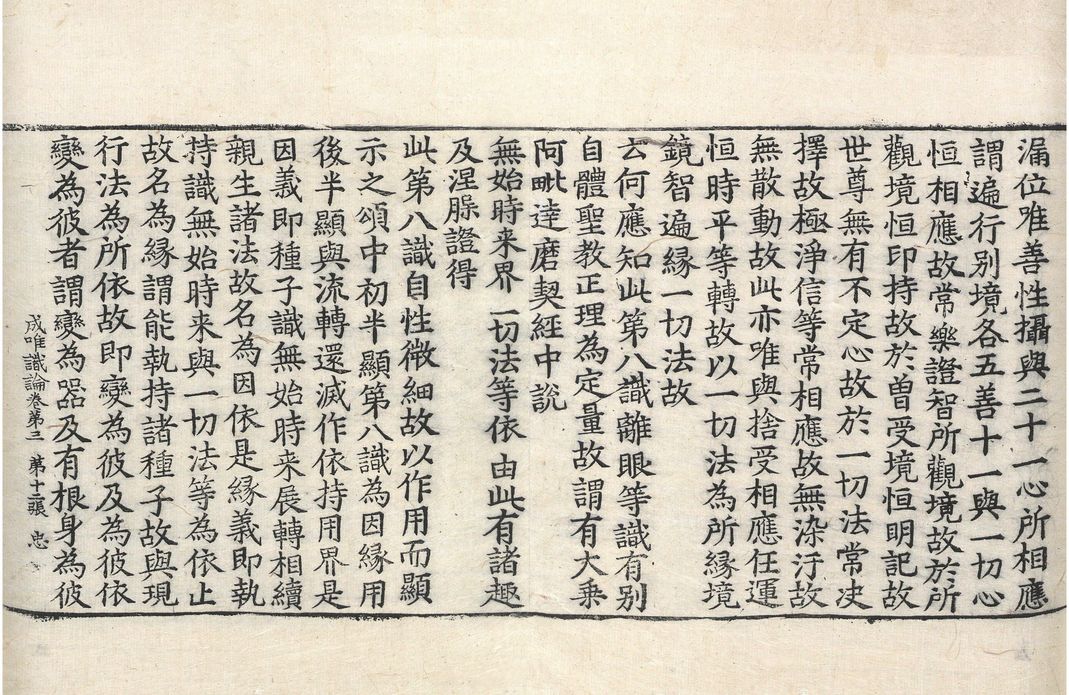 漏位唯善性攝與二十一心所相應
謂遍行別境各五善十一與一切心
恒相應故常樂證智所觀境故於所
觀境恒印持故於曽受境恒明記故
世尊無有不定心故於一切法常决
擇故極淨信等常相應故無染汙故
無散動故此亦唯與捨受相應任運
恒時平等轉故以一切法為所縁境
鏡智遍縁一切法故
云何應知此第八識離眼等識有別
自體聖教正理為定量故謂有大乗
阿毗達磨契經中説
無始時来界 一切法等依 由此有諸趣
及涅槃證得
此第八識自性微細故以作用而顯
示之頌中初半顯第八識為因縁用
後半顯與流轉還滅作依持用界是
因義即種子識無始時来展轉相續
親生諸法故名為因依是縁義即執
持識無始時来與一切法等為依止
故名為縁謂能執持諸種子故與現
行法為所依故即變為彼及為彼依
變為彼者謂變為器及有根身為彼
成唯識論卷第三 第十二張 忠